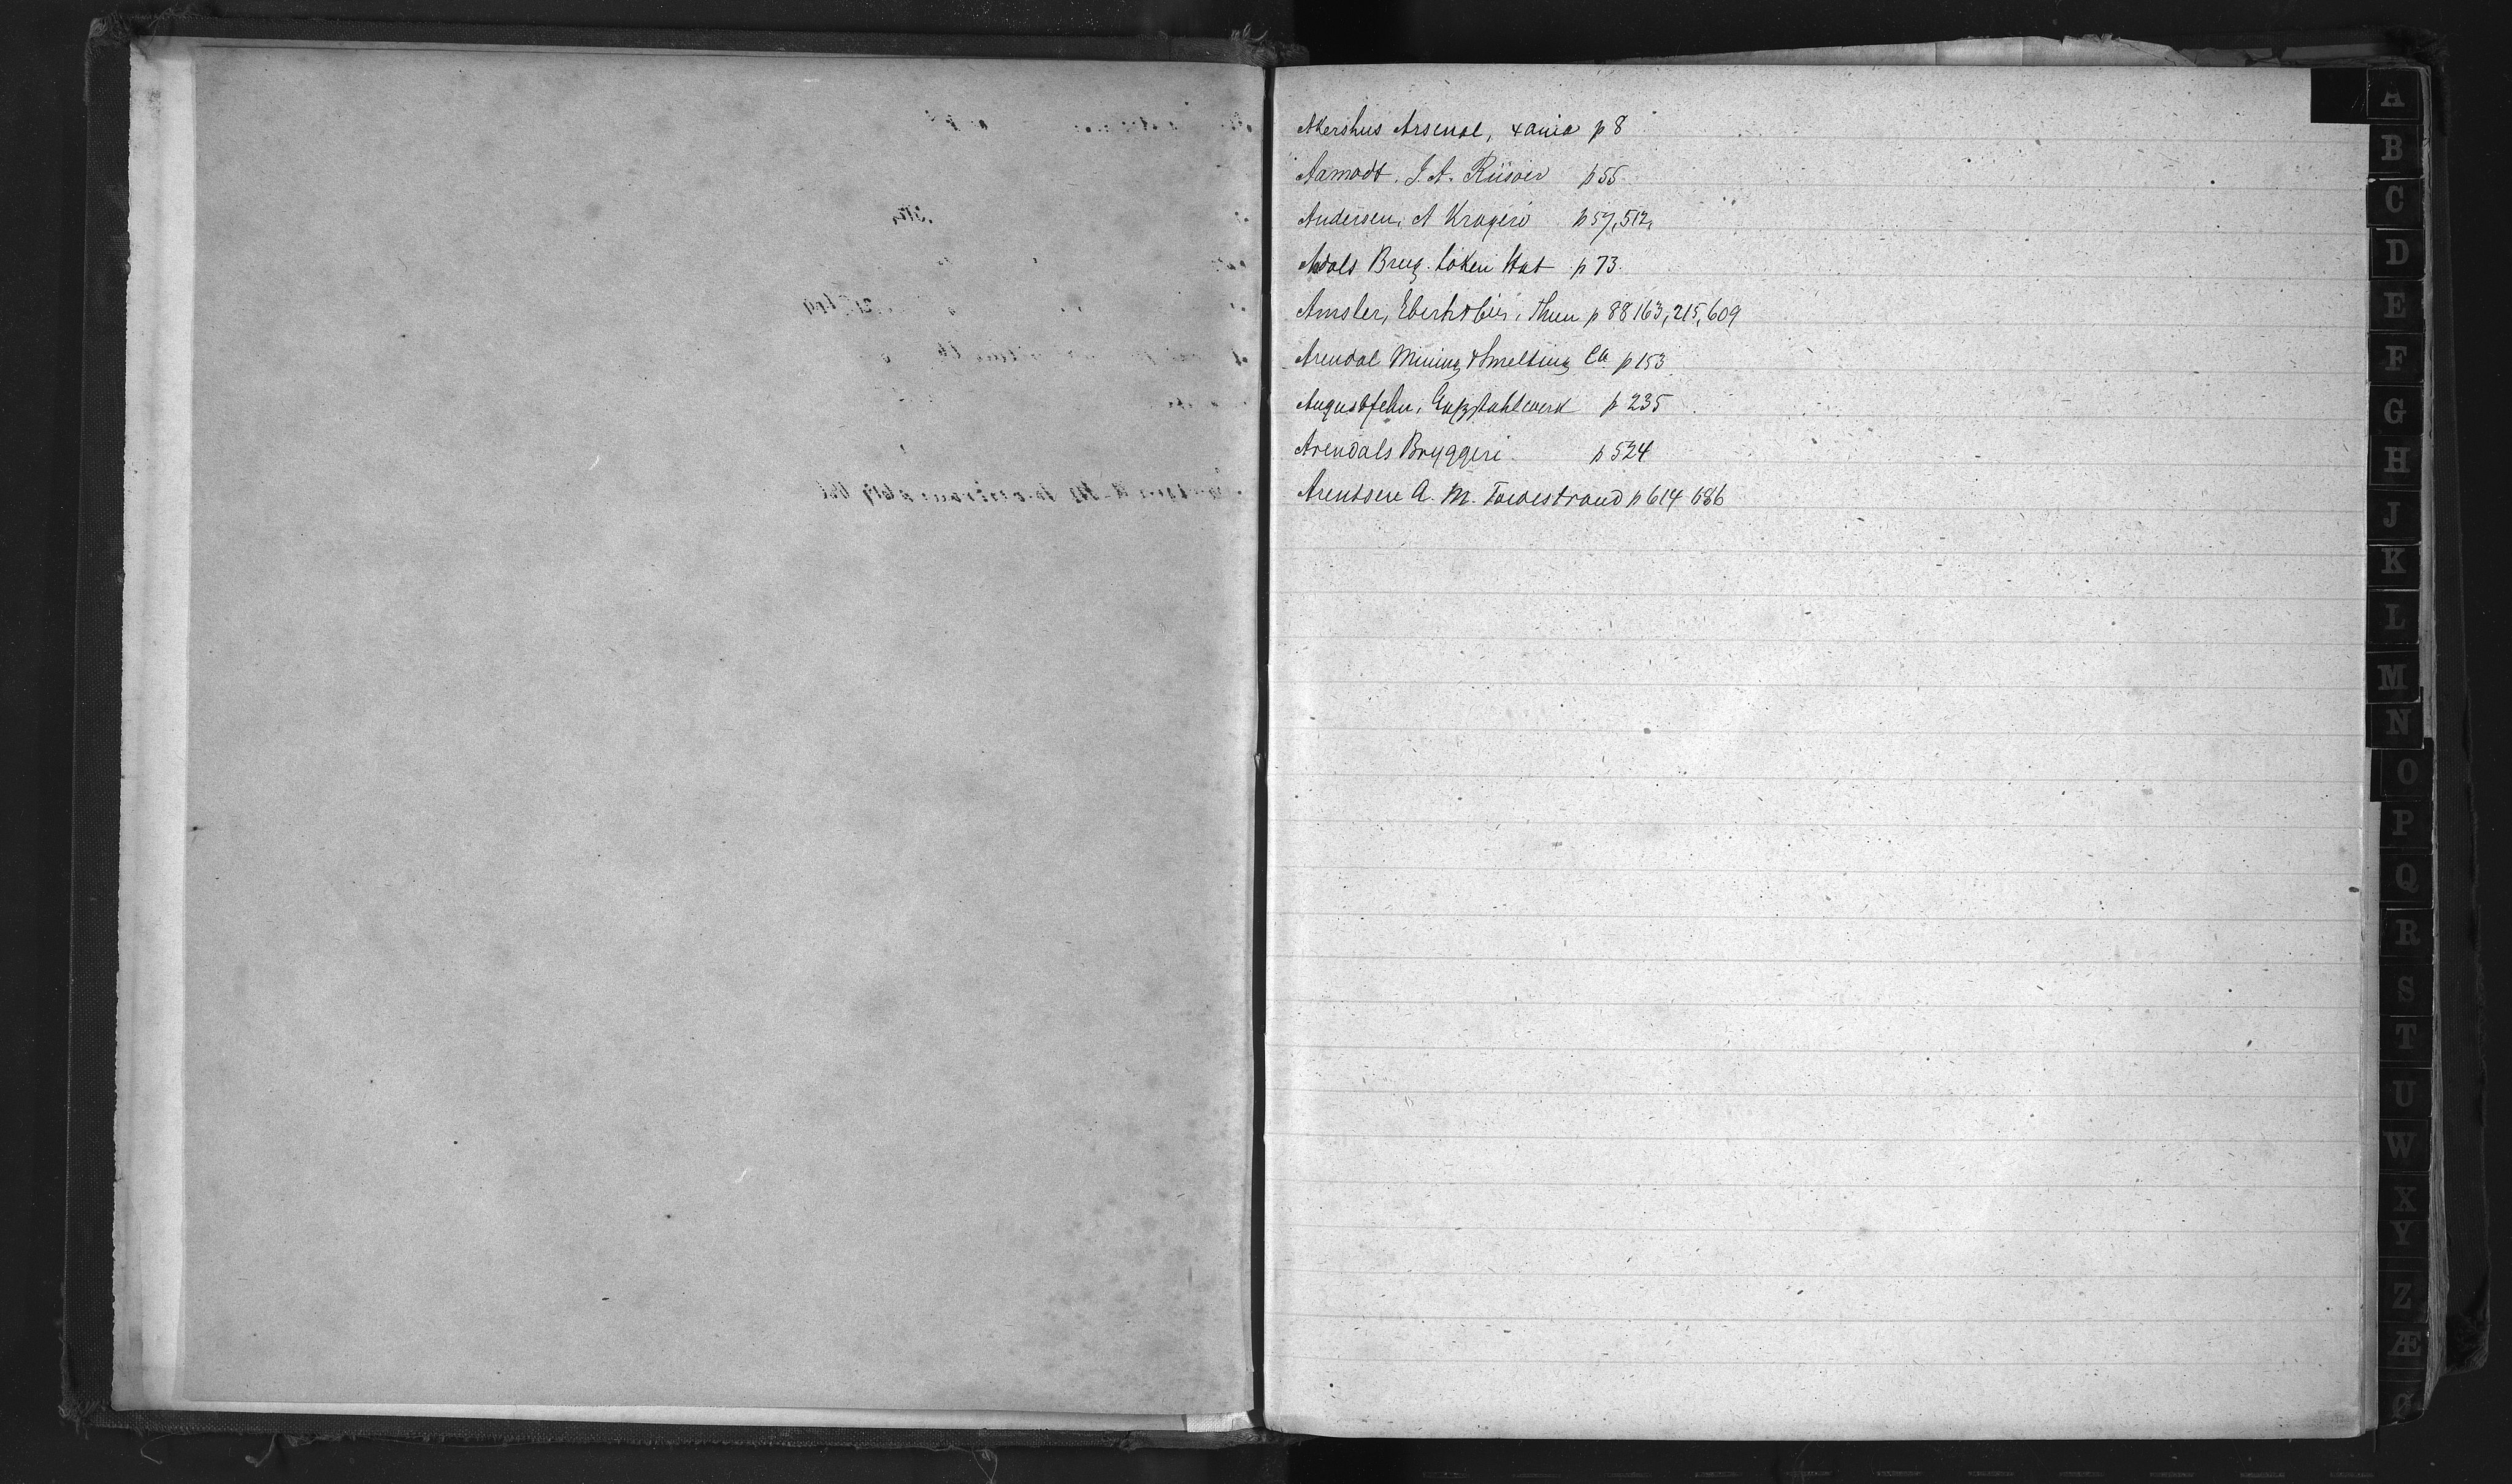 Akershus Arsenal, xania p 8
Aamodt, J. A. Riisøer p 55
Andersen, A Kragerø p 57, 512,
Aadals Brug. Løken Hst p 73
Amsler, Thun p 88 163, 215, 609
Arendal Mining & Smelting Co. p 153
Augustfehn, Gußstahlwerk p 235
Arendals Bryggeri p 524
Arentsen A. M. p 614 686
A
B
C
D
E
F
G
H
J
K
L
M
N
O
P
Q
R
S
T
U
W
X
Y
Z
Æ
Ø